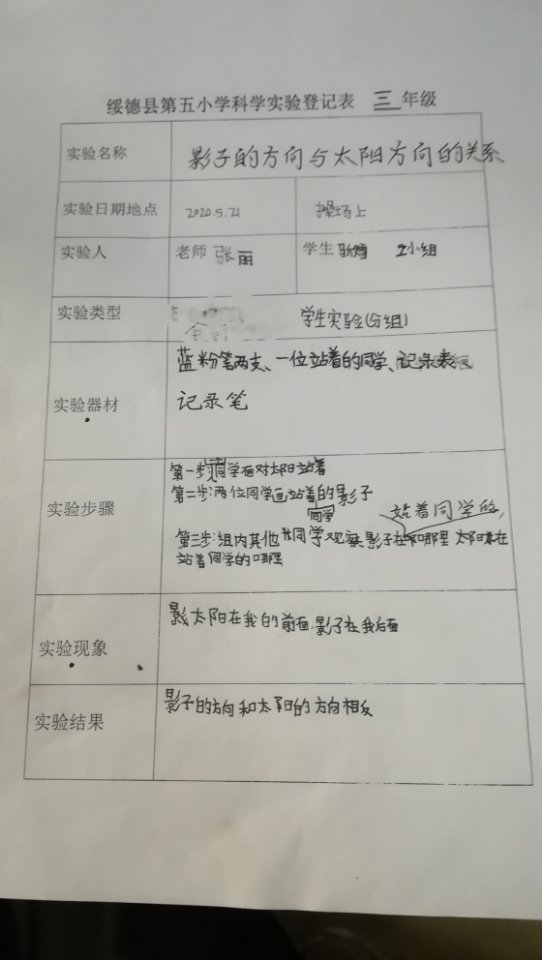 绥德县第五小学科学实验登记表 三 年级
实验名称 影子的方向与太阳方向的关系
实验日期地点 2020.5.21 操场上
实验人 老师 张丽 学生 2小组
实验类型 学生实验(分组)
蓝粉笔两支、一位站着的同学、记录表
实验器材 记录笔
第一步:同学面对太阳站着
第二步:两位同学画站着的同学影子
实验步骤 站着同学的,
第三步:组内其他同学观察影子在哪里 太阳在
站着同学的哪里
太阳在我的前面,影子在我后面
实验现象
影子的方向和太阳的方向相反
实验结果